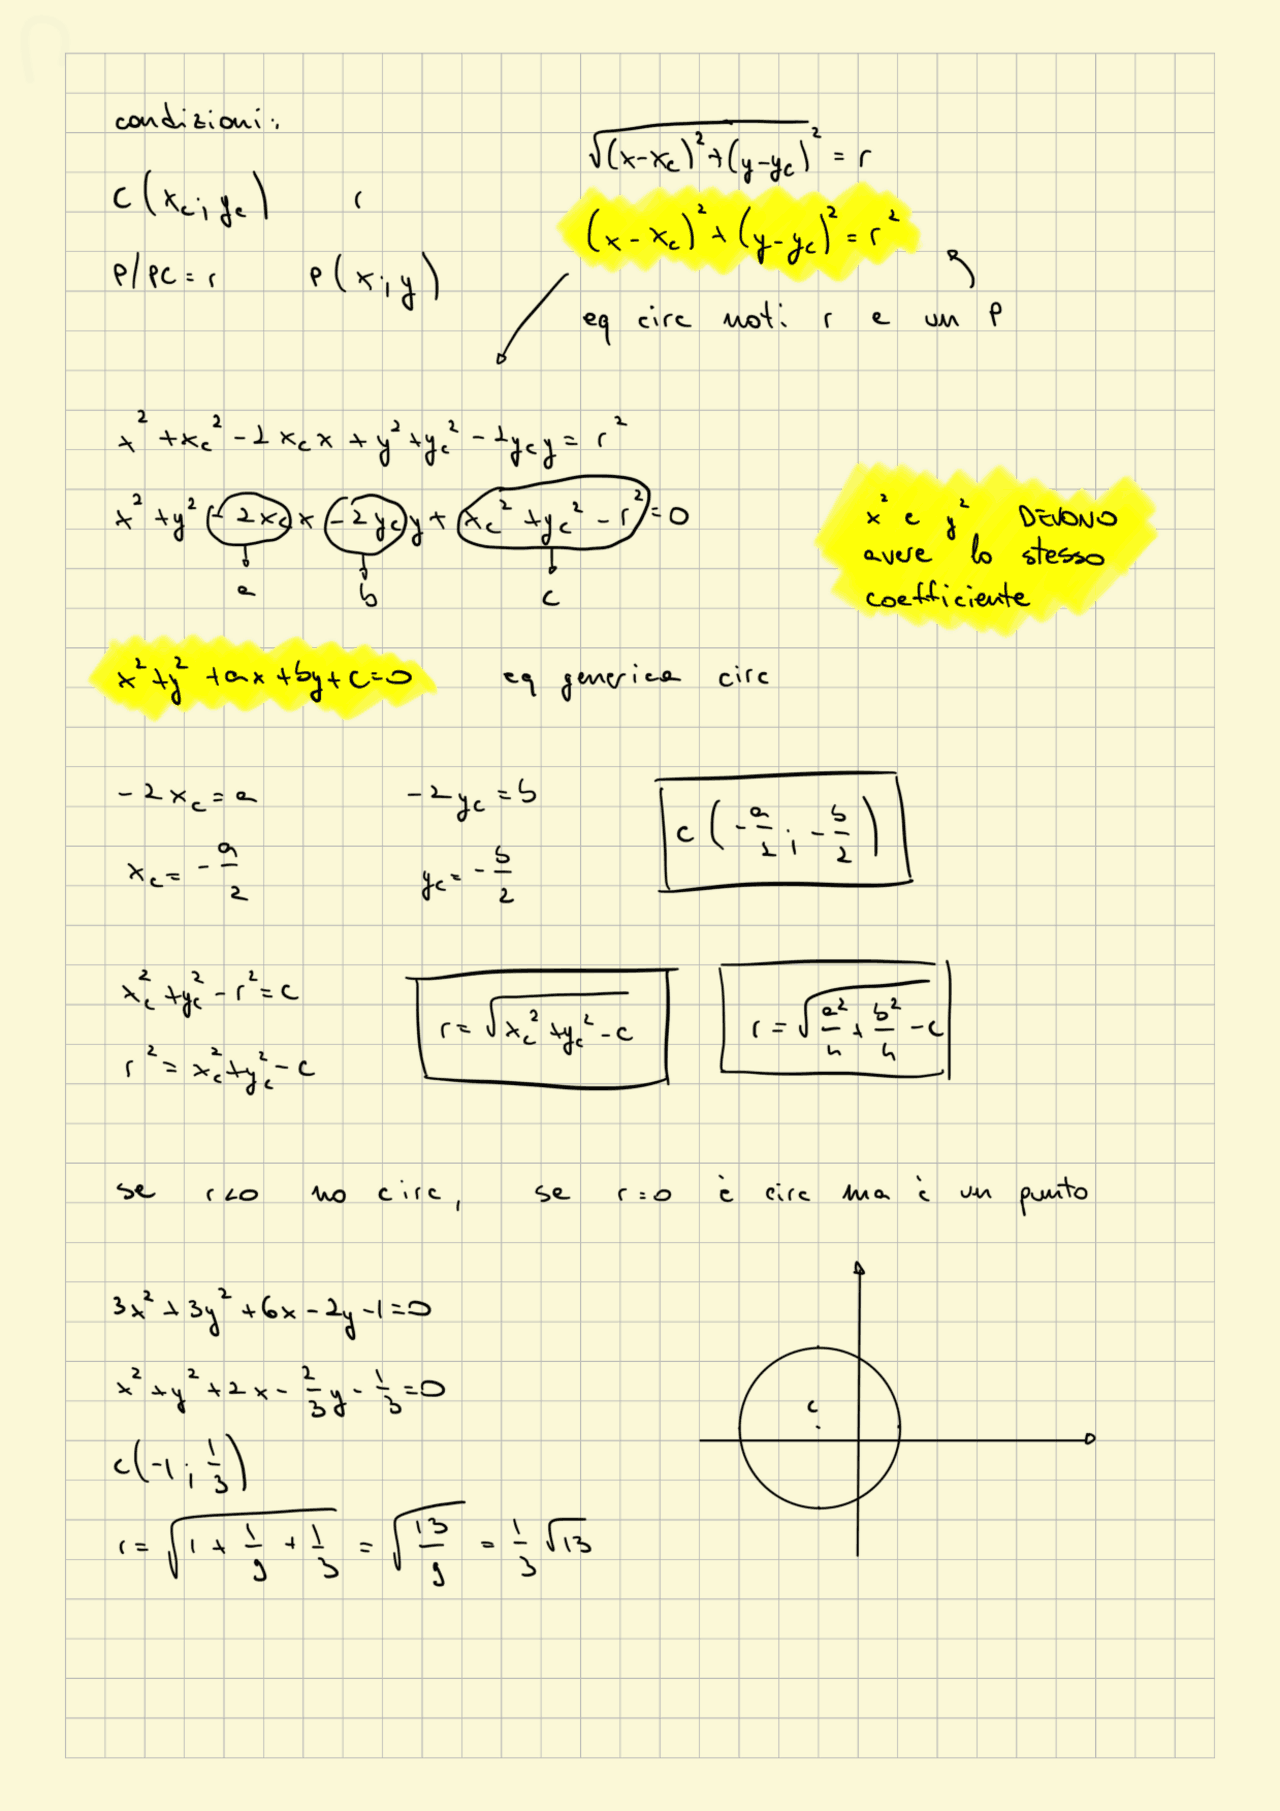 condizioni:
C (x_c ; y_c)    r
P/PC = r    P (x ; y)
√((x-x_c)² + (y-y_c)²) = r
(x - x_c)² + (y - y_c)² = r²
eq circ noti r e un P
x² + x_c² - 2 x_c x + y² + y_c² - 2y_c y = r²
x² + y² - 2x_c x - 2y_c y + x_c² + y_c² - r² = 0
a    b    c
x² e y² DEVONO
avere lo stesso
coefficiente
x² + y² + ax + by + c = 0    eq generica circ
-2x_c = a    -2y_c = b
x_c = -a/2    y_c = -b/2
C (-a/2 ; -b/2)
x_c² + y_c² - r² = c
r² = x_c² + y_c² - c
r = √(x_c² + y_c² - c)
r = √(a²/4 + b²/4 - c)
se r<0 no circ, se r=0 è circ ma è un punto
3x² + 3y² + 6x - 2y - 1 = 0
x² + y² + 2x - 2/3 y - 1/3 = 0
C (-1 ; 1/3)
r = √(1 + 1/9 + 1/3) = √(13/9) = 1/3 √13
C